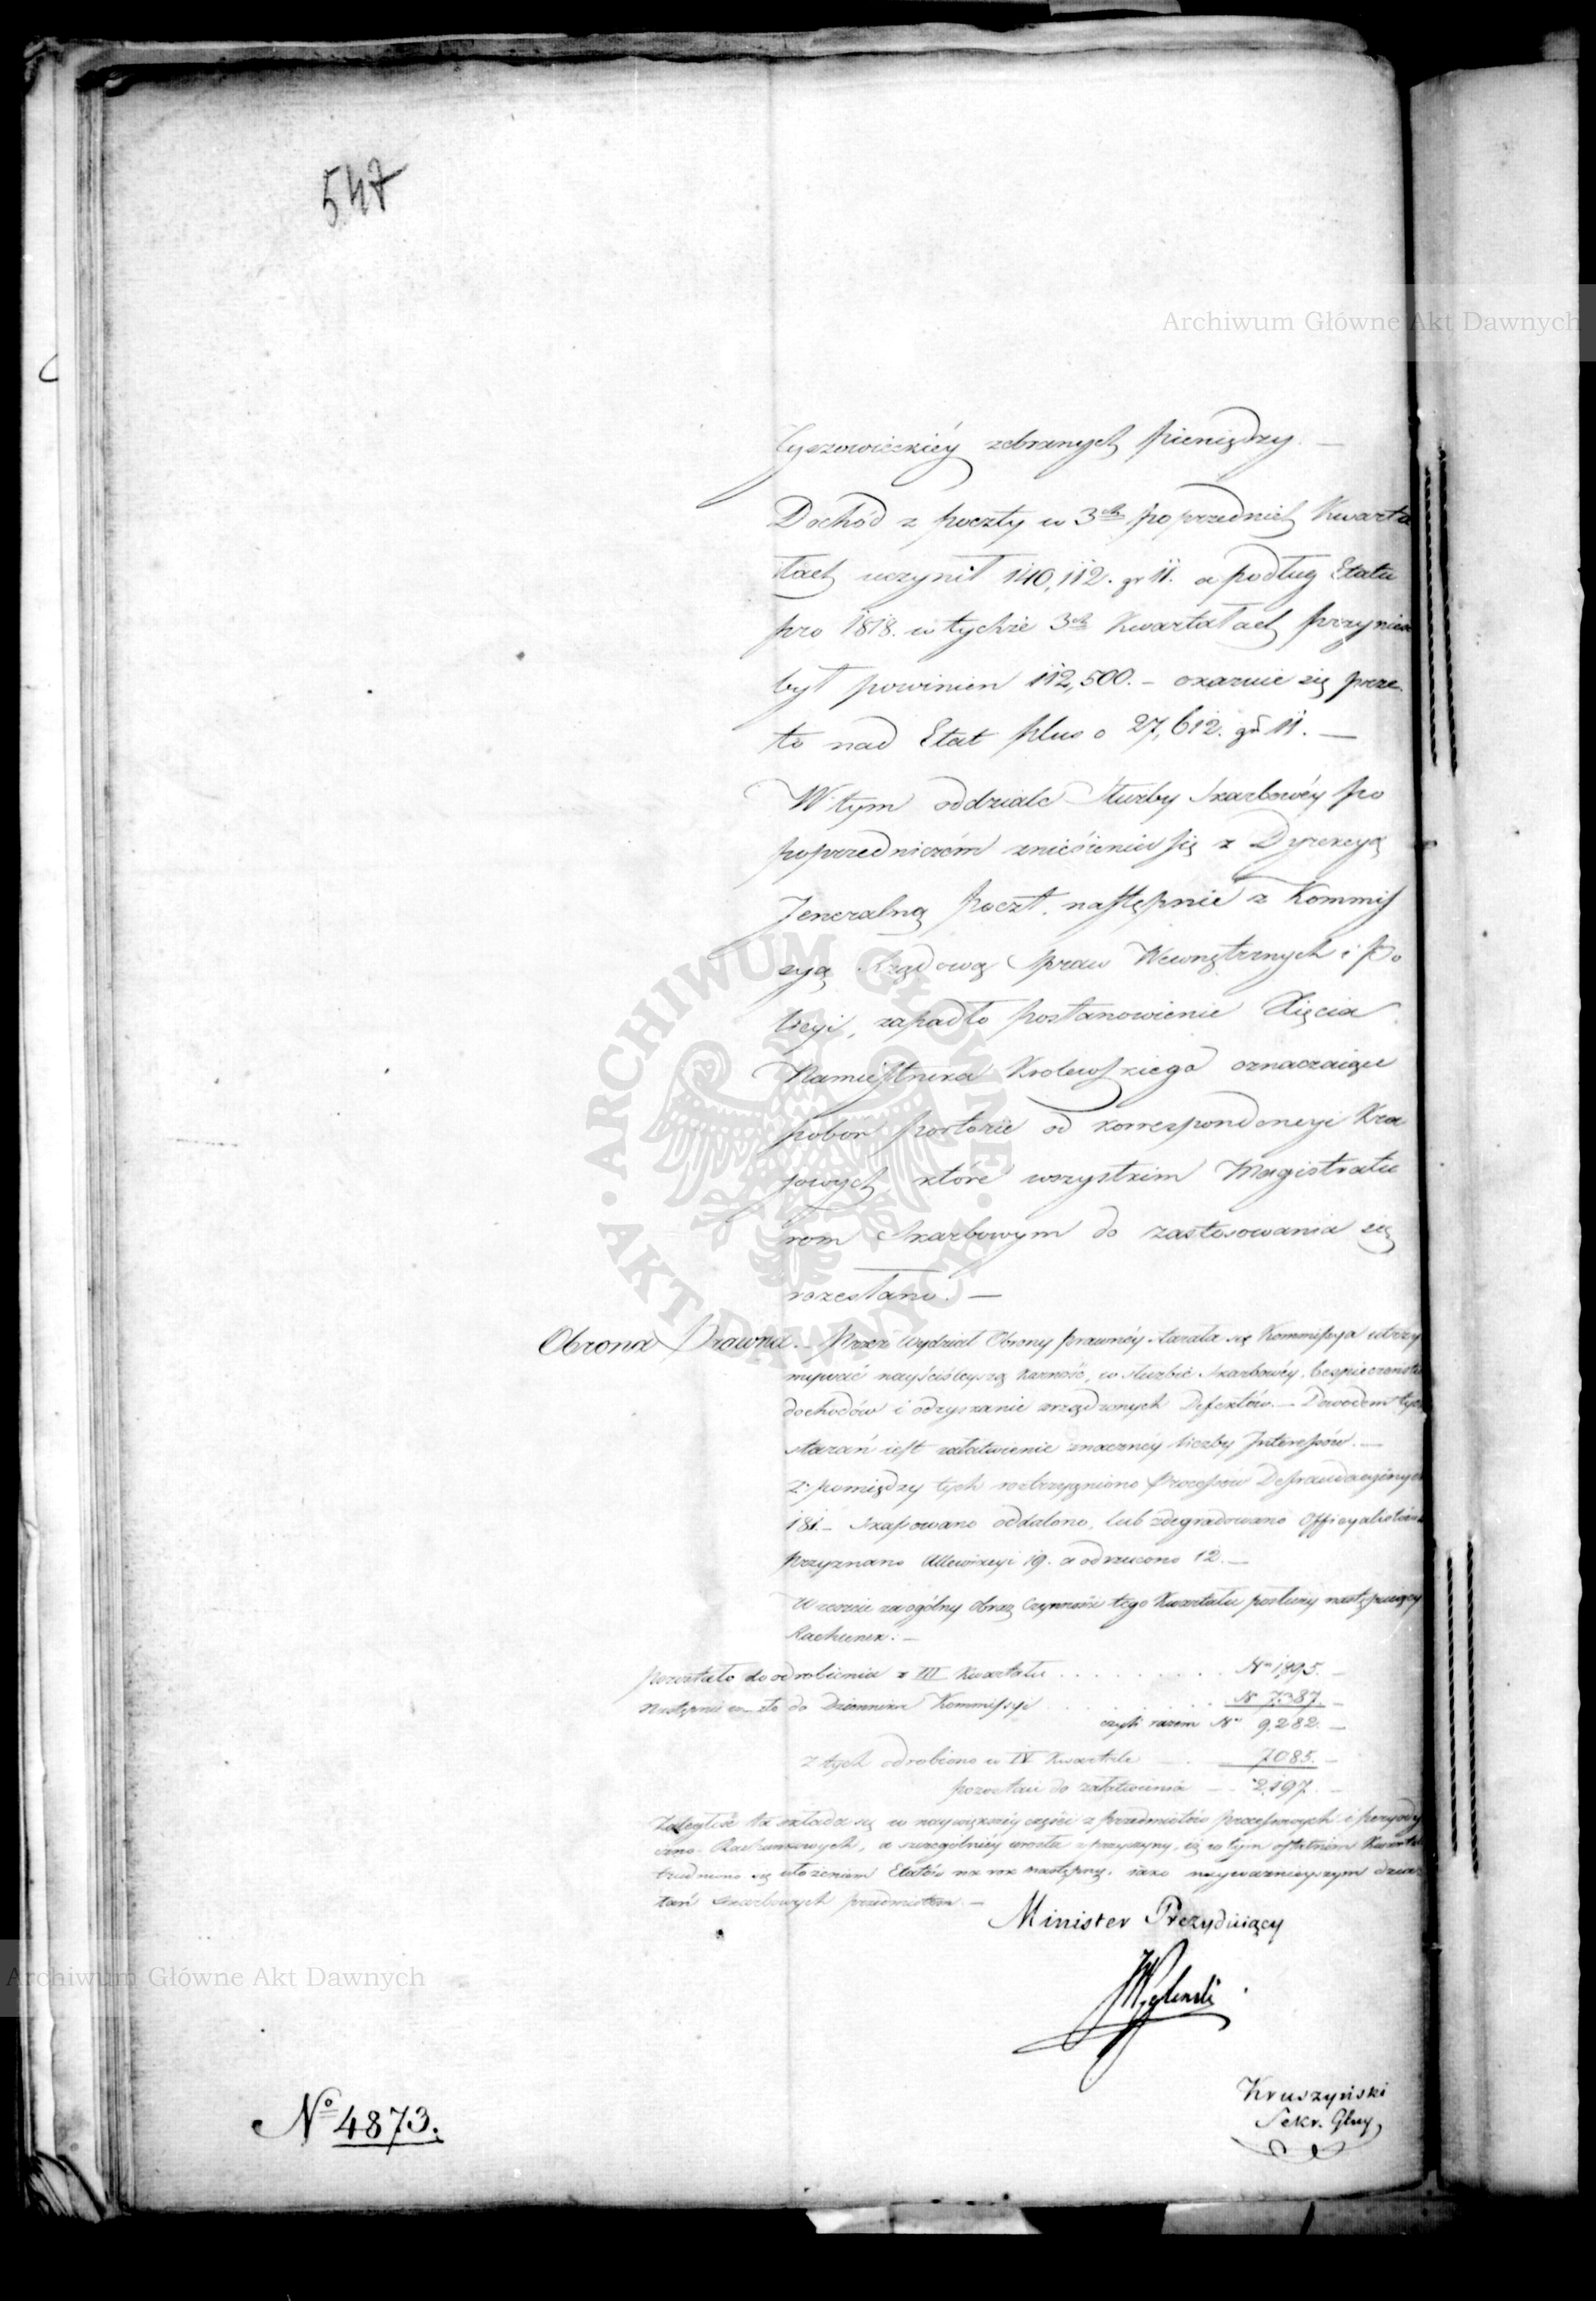 547
Archiwum Główne Akt Dawnych
Tyszowieckiéy zebranych pieniędzy. —
Dochód z poczty w 3ch poprzednich Kwarta
łach uczynił 140,112. gr 11. a podług Etatu
pro 1818. w tychże 3ch Kwartałach przynieść
był powinien 112,500. — okazuie się prze
to nad Etat plus o 27,612. gr 11. —
W tym oddziale Służby Skarbowéy po
poprzedniczém zniesieniu się z Dyrekcyą
Jeneralną Poczt, następnie z Kommis
syą Rządową Spraw Wewnętrznych i Po
licyi, zapadło postanowienie Xięcia
Namiestnika Krolewskiego oznaczaiące
pobor portorie od korrespondencyi Kra
jowych które wszystkim Magistratu
rom Skarbowym do zastosowania się
rozesłano. —
Obrona Prawna. — Przez Wydział Obrony prawnéy starała się Kommissya utrzy
mywać nayściśleyszą karność, w służbie Skarbowéy, bezpieczeństwo
dochodów i odzyskanie zrządzonych Defektów. — Dowodem tych
starań iest załatwienie znacznéy liczby Interessów. —
Z pomiędzy tych rozstrzygniono Processów Defraudacyinych
181. — Skassowano oddalono, lub zdegradowano Officyalistów
Przyznano Allewiacyi 19. a odrzucono 12. —
Wreszcie za ogólny obraz Czynności tego Kwartału posłuży następuiący
Rachunek: —
pozostało do odrobienia z III Kwartału . . . . . . . . . Nr 1,895. —
Następnie weszło do Dziennika Kommissyi . . . . . . . . . Nr 7,387. —
czyli razem Nr 9,282. —
Z tych odrobiono w IV Kwartale — . 7,085. —
pozostaie do załatwienia — . 2,197. —
Zaległość ta składa się w naywiększéy części z przedmiotów processowych i peryody
czno-Rachunkowych, a szczególniéy wzrosła z przyczyny, iż w tym ostatnim Kwartale
trudniono się ułożeniem Etatów na rok następny, iako nayważnieyszym dzia
łań skarbowych przedmiotem. —
Minister Prezyduiący
Węgleński
Kruszyński
Sekr. Glny
Archiwum Główne Akt Dawnych
No 4873.
ARCHIWUM GŁÓWNE · AKT DAWNYCH ·